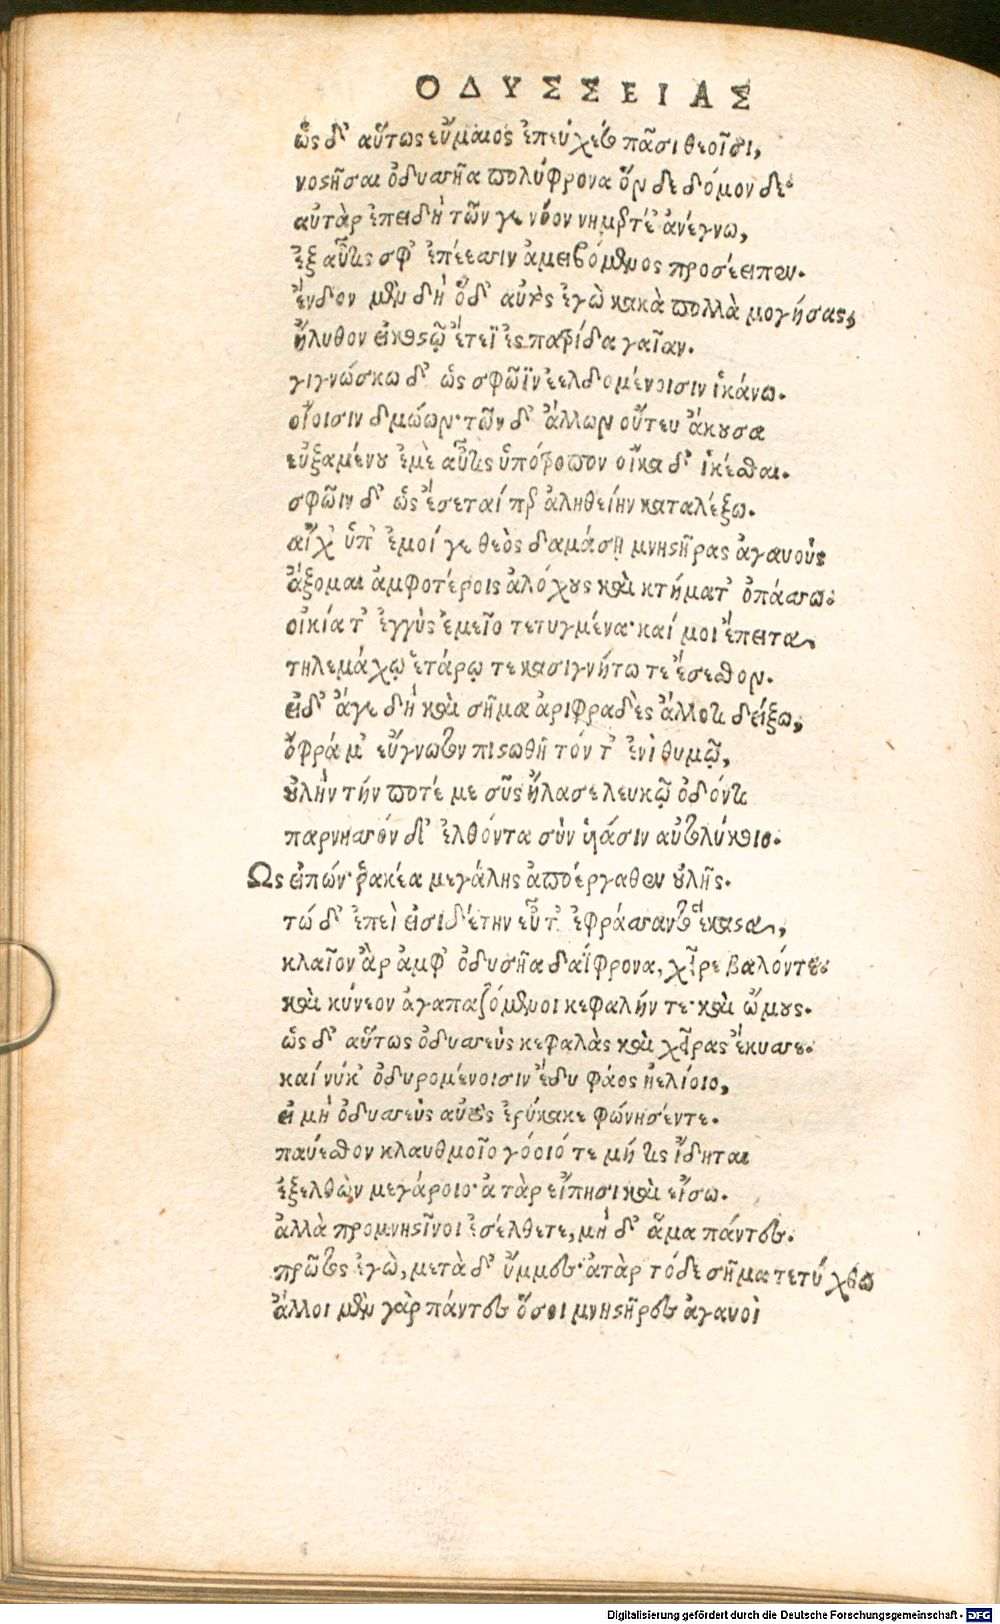 ΟΔΥΣΣΕΙΑΣ
ὣς δ' αὕτως εὔμαιος ἐπεύχετο πᾶσι θεοῖσι,
νοστῆσαι ὀδυσσῆα πολύφρονα ὅν δε δόμον δε·
αὐτὰρ ἐπειδὴ τῶν γε νόον νημερτέ' ἀνέγνω,
ἐξ αὖτις σφ' ἐπέεσσιν ἀμειβόμενος προσέειπεν.
ἔνδον μὲν δὴ ὅδ' αὐτὸς ἐγὼ κακὰ πολλὰ μογήσας,
ἤλυθον εἰκοστῷ ἔτεϊ ἐς πατρίδα γαῖαν.
γιγνώσκω δ' ὡς σφῶϊν ἐελδομένοισιν ἱκάνω.
οἴοισιν δμώων· τῶν δ' ἄλλων οὔτευ ἄκουσα
εὐξαμένου ἐμὲ αὖτις ὑπότροπον οἴκαδ' ἱκέσθαι.
σφῶιν δ' ὡς ἔσεταί περ ἀληθείην καταλέξω.
αἴχ' ὑπ' ἐμοί γε θεὸς δαμάσῃ μνηστῆρας ἀγαυοὺς
ἄξομαι ἀμφοτέροις ἀλόχους καὶ κτήματ' ὀπάσσω·
οἰκία τ' ἐγγὺς ἐμεῖο τετυγμένα· καί μοι ἔπειτα,
τηλεμάχῳ ἑτάρῳ τε κασιγνήτω τε ἔσεσθον.
εἰδ' ἄγε δὴ καὶ σῆμα ἀριφραδὲς ἄλλοτι δείξω,
ὄφρά μ' εὔγνωτον πιστωθῆ τόν τ' ἐνὶ θυμῷ,
οὐλὴν τήν ποτέ με σῦς ἤλασε λευκῷ ὀδόντι
παρνησσόν δ' ἐλθόντα σὺν υἱάσιν αὐτολύκοιο.
Ως εἰπών· ῥακέα μεγάλης ἀποέργαθεν οὐλῆς.
τώ δ' ἐπεὶ εἰσιδέτην εὖ τ' ἐφράσσαντο ἕκαστα,
κλαῖον ἂρ ἀμφ' ὀδυσῆα δαΐφρονα, χεῖρε βαλόντε·
καὶ κύνεον ἀγαπαζόμενοι κεφαλήν τε· καὶ ὤμους.
ὣς δ' αὕτως ὀδυσσεὺς κεφαλὰς καὶ χεῖρας ἔκυσσε·
καί νύκ' ὀδυρομένοισιν ἔδυ φάος ἠελίοιο,
εἰ μὴ ὀδυσσεὺς αὐτὸς ἐρύκακε φώνησέντε.
παύεσθον κλαυθμοῖο γόοιό τε μή τις ἴδηται
ἐξελθὼν μεγάροιο· ἀτὰρ εἴπησι καὶ εἴσω.
ἀλλὰ προμνηστῖνοι ἐσέλθετε, μὴ δ' ἅμα πάντες.
πρῶτος ἐγὼ, μετὰ δ' ὔμμες· ἀτὰρ τόδε σῆμα τετύχθω
ἄλλοι μὲν γὰρ πάντες ὅσοι μνηστῆρες ἀγαυοὶ
Digitalisierung gefördert durch die Deutsche Forschungsgemeinschaft - DFG